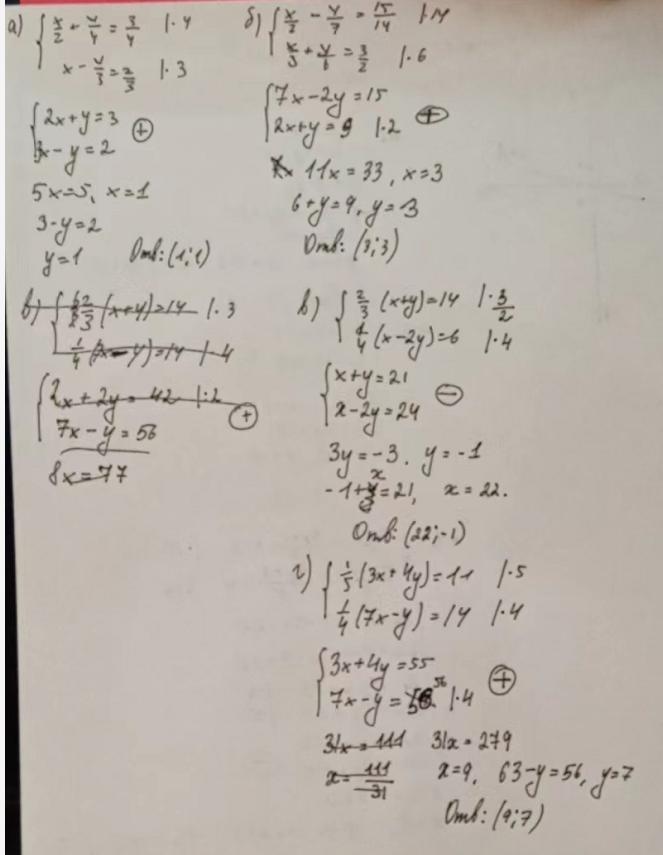 а) { x/2 + y/4 = 3/4 | · 4
x - y/3 = 2/3 | · 3
{ 2x + y = 3
3x - y = 2 (+)
5x = 5, x = 1
3 - y = 2
y = 1 Отв: (1; 1)
б) { x/2 - y/7 = 15/14 | · 14
x/3 + y/6 = 3/2 | · 6
{ 7x - 2y = 15
2x + y = 9 | · 2 (+)
11x = 33, x = 3
6 + y = 9, y = 3
Отв: (3; 3)
в) { 2/3 (x+y) = 14 | · 3
1/4 (7x - y) = 14 | · 4
{ 2x + 2y = 42 | : 2
7x - y = 56 (+)
8x = 77
в) { 2/3 (x+y) = 14 | · 3/2
1/4 (x - 2y) = 6 | · 4
{ x + y = 21
x - 2y = 24 (-)
3y = -3. y = -1
-1 + x = 21, x = 22.
Отв: (22; -1)
г) { 1/5 (3x + 4y) = 11 | · 5
1/4 (7x - y) = 14 | · 4
{ 3x + 4y = 55
7x - y = 56 | · 4 (+)
31x = 111 31x = 279
x = 111/31 x = 9, 63 - y = 56, y = 7
Отв: (9; 7)